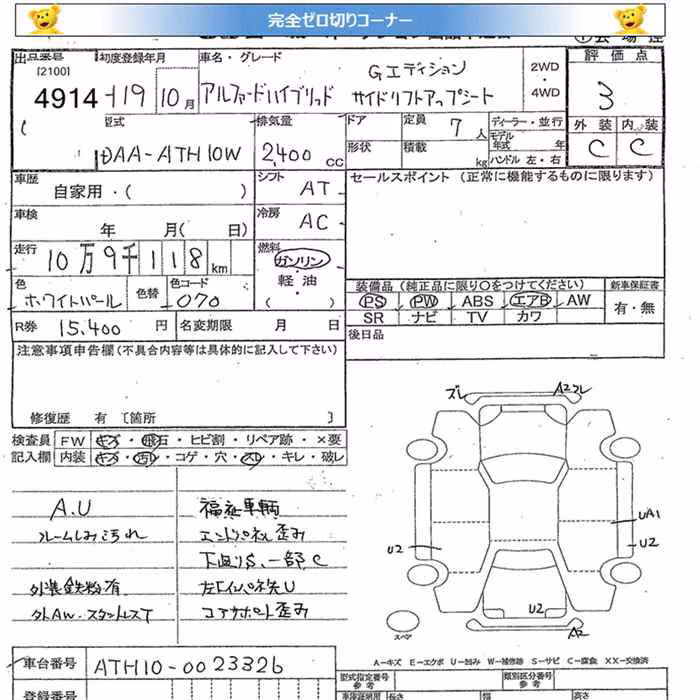 完全ゼロ切りコーナー
出品番号 初度登録年月 車名・グレード 2WD・4WD 評価点
[2100]
4914 19 10月 アルファードハイブリッド Gエディション サイドリフトアップシート 3
外装 内装
C C
型式 排気量 ドア 定員 7人 ディーラー・並行
DAA-ATH10W 2,400cc 形状 積載 kg モデル年式 年
ハンドル 左・右
車歴 自家用・( ) シフト AT セールスポイント (正常に機能するものに限ります)
車検 年 月( 日) 冷房 AC
走行 10万9千118km 燃料 ガソリン・軽油・( )
装備品 (純正品に限り○をつけてください) 新車保証書
色 ホワイトパール 色替 色コード 070 PS PW ABS エアB AW 有・無
SR ナビ TV カワ
R券 15,400円 名変期限 月 日 後日品
注意事項申告欄(不具合内容等は具体的に記入して下さい)
修復歴 有 〔箇所 〕
検査員 FW キズ・飛石・ヒビ割・リペア跡・×要
記入欄 内装 キズ・汚レ・コゲ・穴・スレ・キレ・破レ
ズレ A2ズレ
A.U 福祉車輌
ルームしみ汚れ エンドパネル歪み
下廻りS、一部C
外装鉄粉有
外AW・スタットレスT コアサポート歪み
UA1
U2 U2
U2
スペア A2
A-キズ E-エクボ U-凹み W-補修跡 S-サビ C-腐食 XX-交換済
車台番号 ATH10-0023326
型式指定番号 参考 類別区分番号 参考
登録番号 長さ 幅 高さ